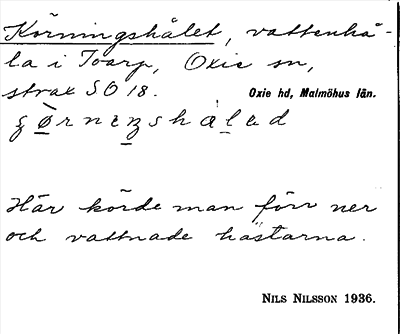 Körningshålet, vattenhå-
la i Toarp, Oxie sn,
strax SO 18. Oxie hd, Malmöhus län.
Här körde man förr ner
och vattnade hästarna.
NILS NILSSON 1936.